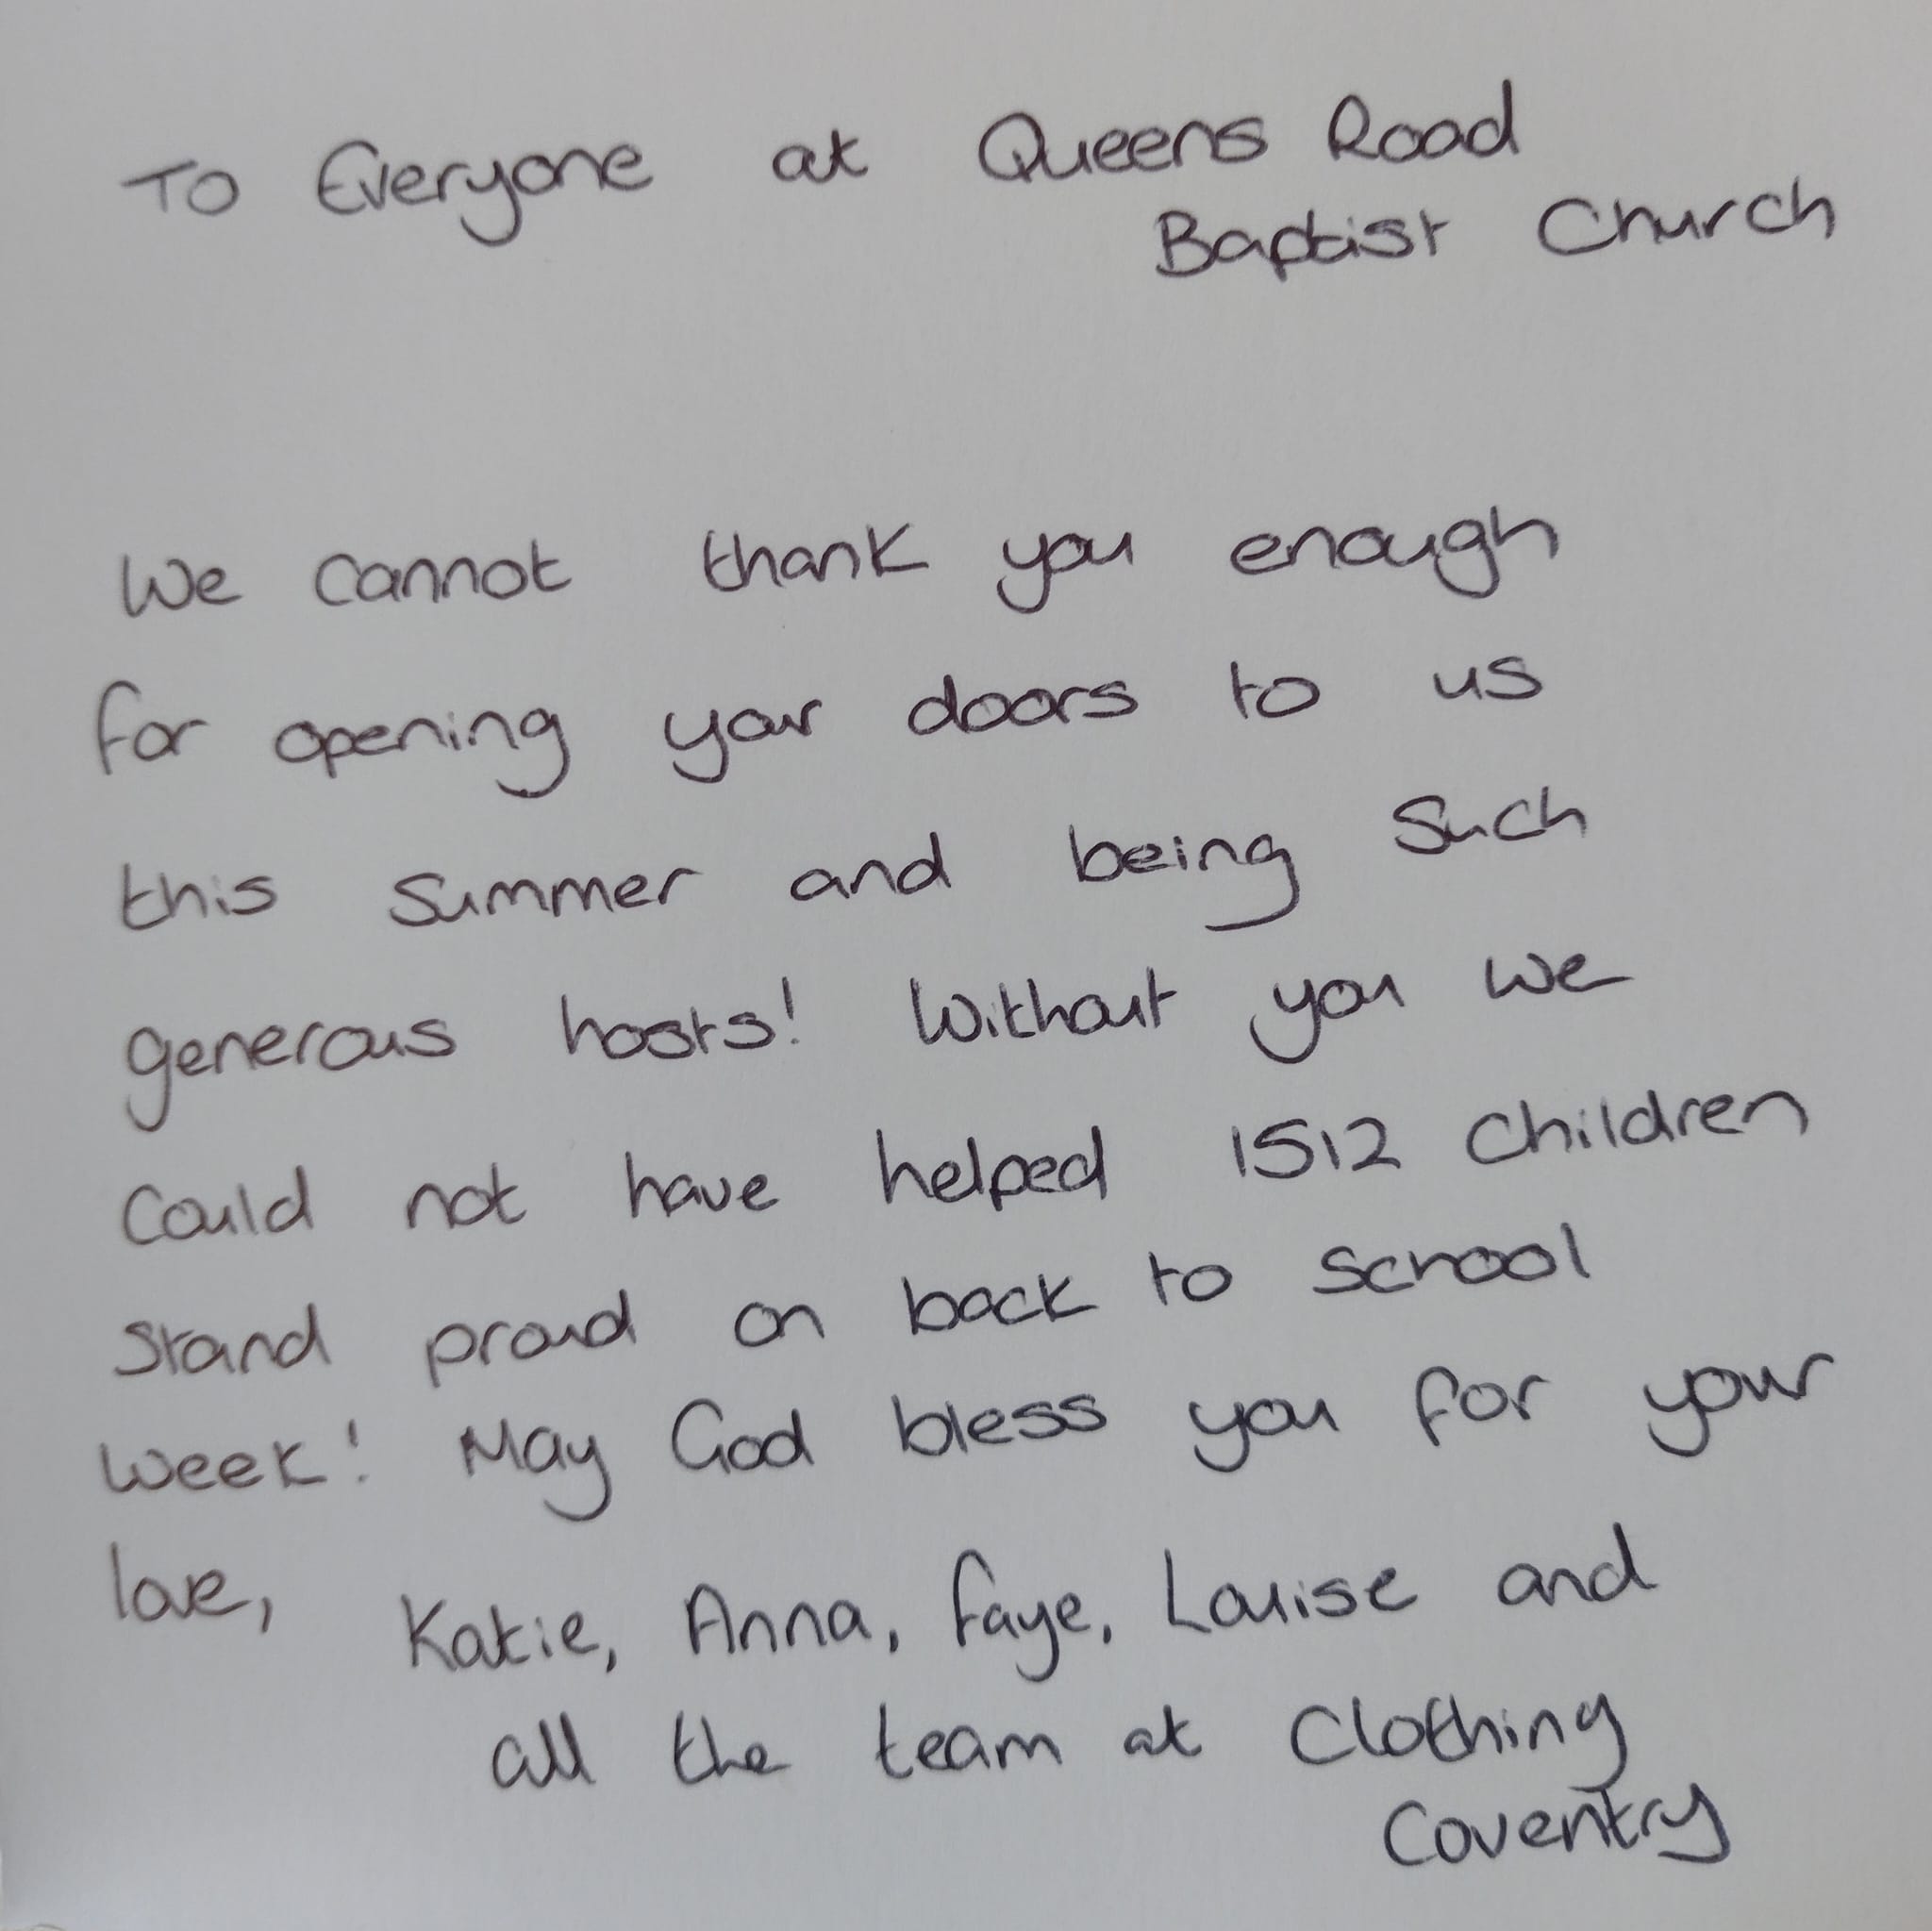 To Everyone at Queens Road
Baptist Church
We cannot thank you enough
for opening your doors to us
this summer and being such
generous hosts! Without you we
could not have helped 1512 children
stand proud on back to school
week! May God bless you for your
love,
Katie, Anna, Faye, Louise and
all the team at Clothing
Coventry